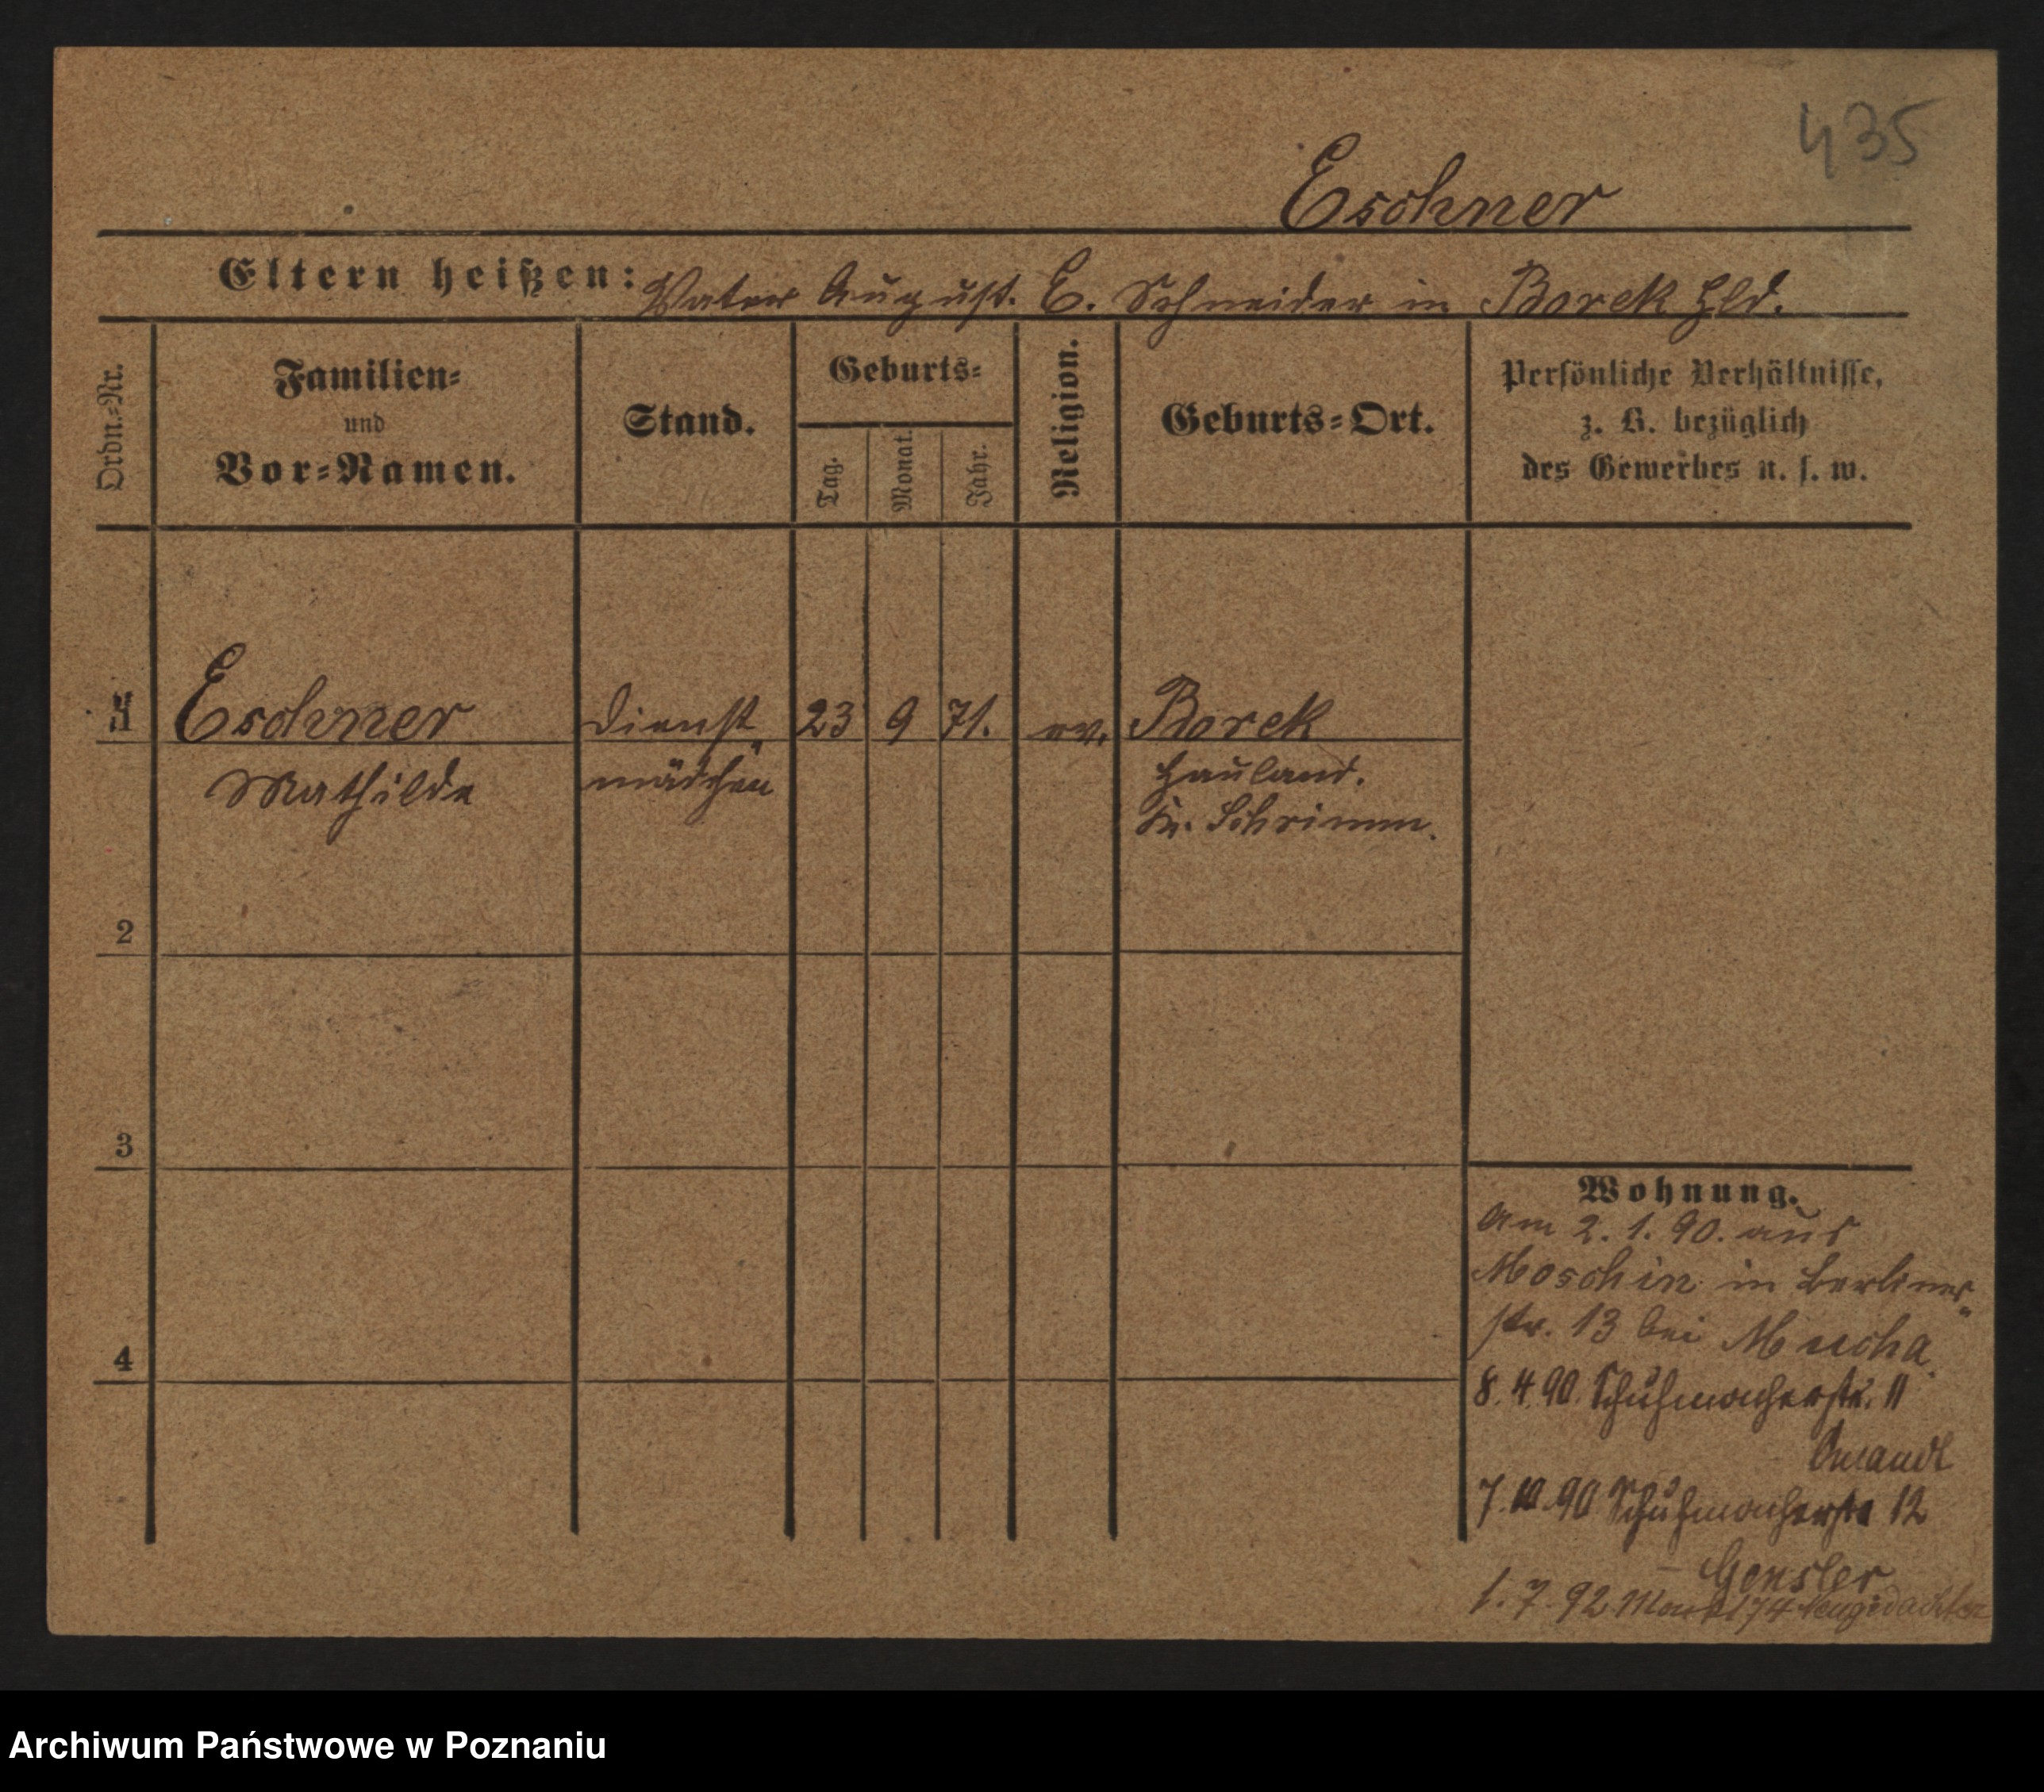 435
Eschner
Eltern heißen: Vater August. E. Schneider in Borek Hld.
Ordn.-Nr.
Familien-
und
Vor-Namen.
Stand.
Geburts-
Tag.
Monat.
Jahr.
Religion.
Geburts-Ort.
Persönliche Verhältnisse,
z. B. bezüglich
des Gewerbes u. s. w.
1 Eschner Dienst 23 9 71. ev. Borek
Mathilde mädchen Hauland.
Kr. Schrimm.
2
3
4
Wohnung.
Am 2. 1. 90. aus
Moschin in Berliner-
str. 13 bei Mucha
8. 4. 90. Schuhmacherstr. 11
7. 10. 90 Schuhmacherstr 12
Gensler
1. 7. 92 Markt 74
Archiwum Państwowe w Poznaniu